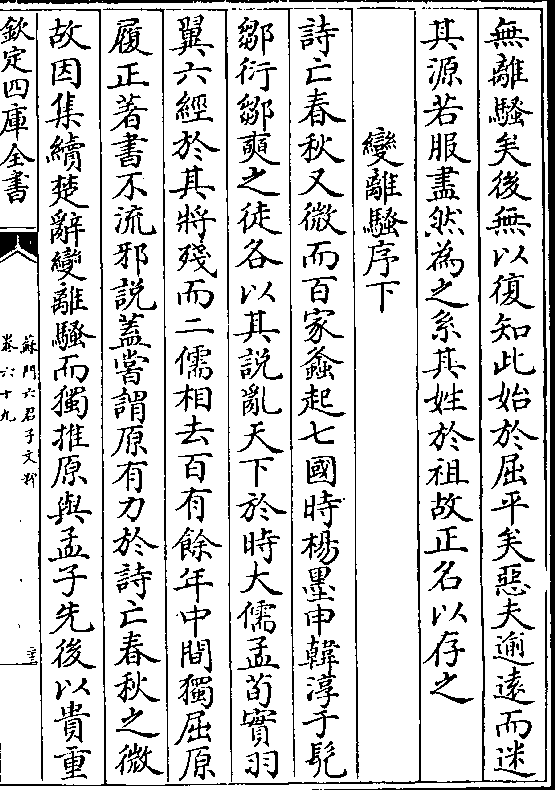 無離騷矣後無以復知此始於屈平矣惡夫逾遠而迷
其源若服盡然為之系其姓於祖故正名以存之
變離騷序下
詩亡春秋又微而百家蠭起七國時楊墨申韓淳于髠
鄒衍鄒奭之徒各以其說亂天下於時大儒孟荀實羽
翼六經於其將殘而二儒相去百有餘年中間獨屈原
履正著書不流邪說蓋嘗謂原有力於詩亡春秋之微
故因集續楚辭變離騷而獨推原與孟子先後以貴重
欽定四庫全書
蘇門六君子文粹
卷六十九